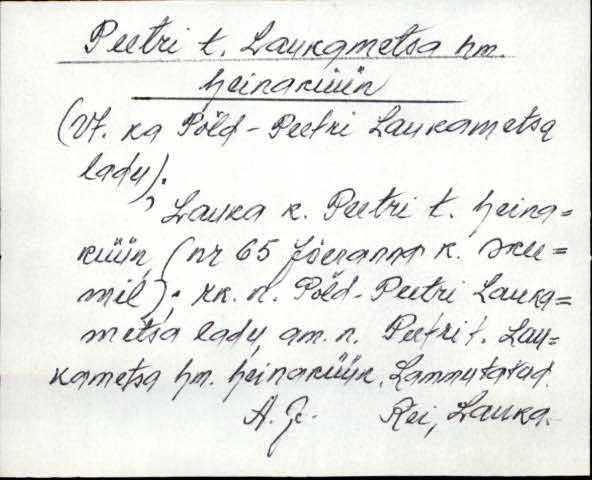 Peetri t. Laukametsa hm.
heinaküün
(Vt. ka Põld-Peetri Laukametsa
ladu).
Lauka k. Peetri t. heina=
küün (nr 65 Jõeranna k. skee=
mil); rk. n. Põld-Peetri Lauka=
metsa ladu, am. n. Peetri t. Lau=
kametsa hm. heinaküün. Lammutatud.
A. J. Rei, Lauka.